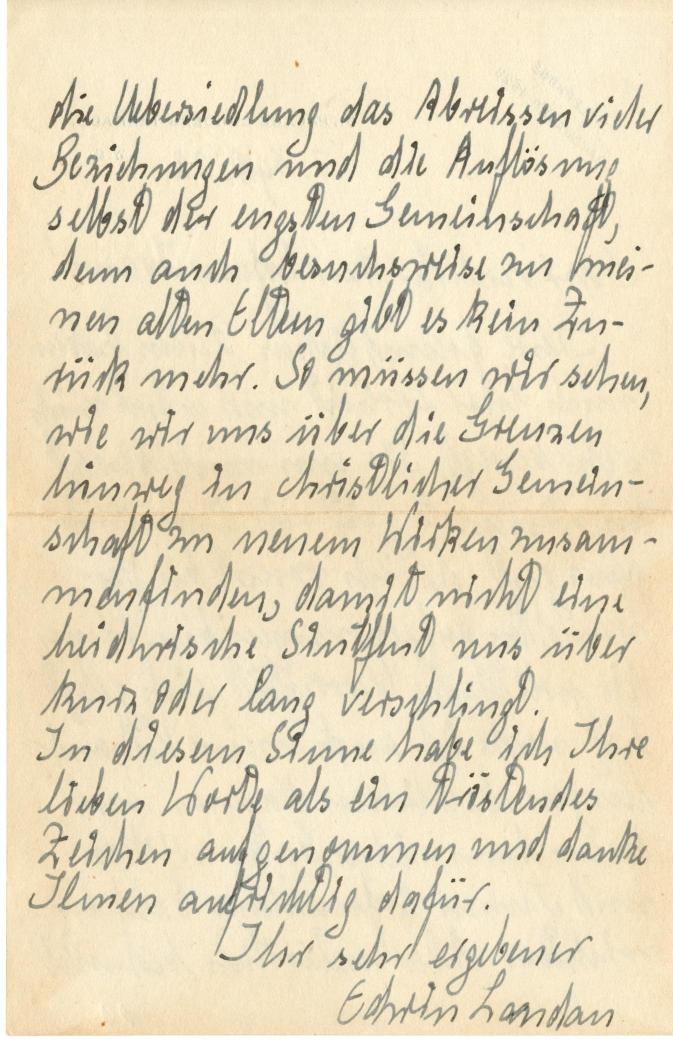 die Uebersiedlung das Abreissen vieler
Beziehungen und die Auflösung
selbst der engsten Gemeinschaft,
denn auch besuchsweise zu mei-
nen alten Eltern gibt es kein Zu-
rück mehr. So müssen wir sehen,
wie wir uns über die Grenzen
hinweg in christlicher Gemein-
schaft zu neuem Wirken zusam-
menfinden, damit nicht eine
heidnische Sintflut uns über
kurz oder lang verschlingt.
In diesem Sinne habe ich Ihre
lieben Worte als ein tröstendes
Zeichen aufgenommen und danke
Ihnen aufrichtig dafür.
Ihr sehr ergebener
Edwin Landau